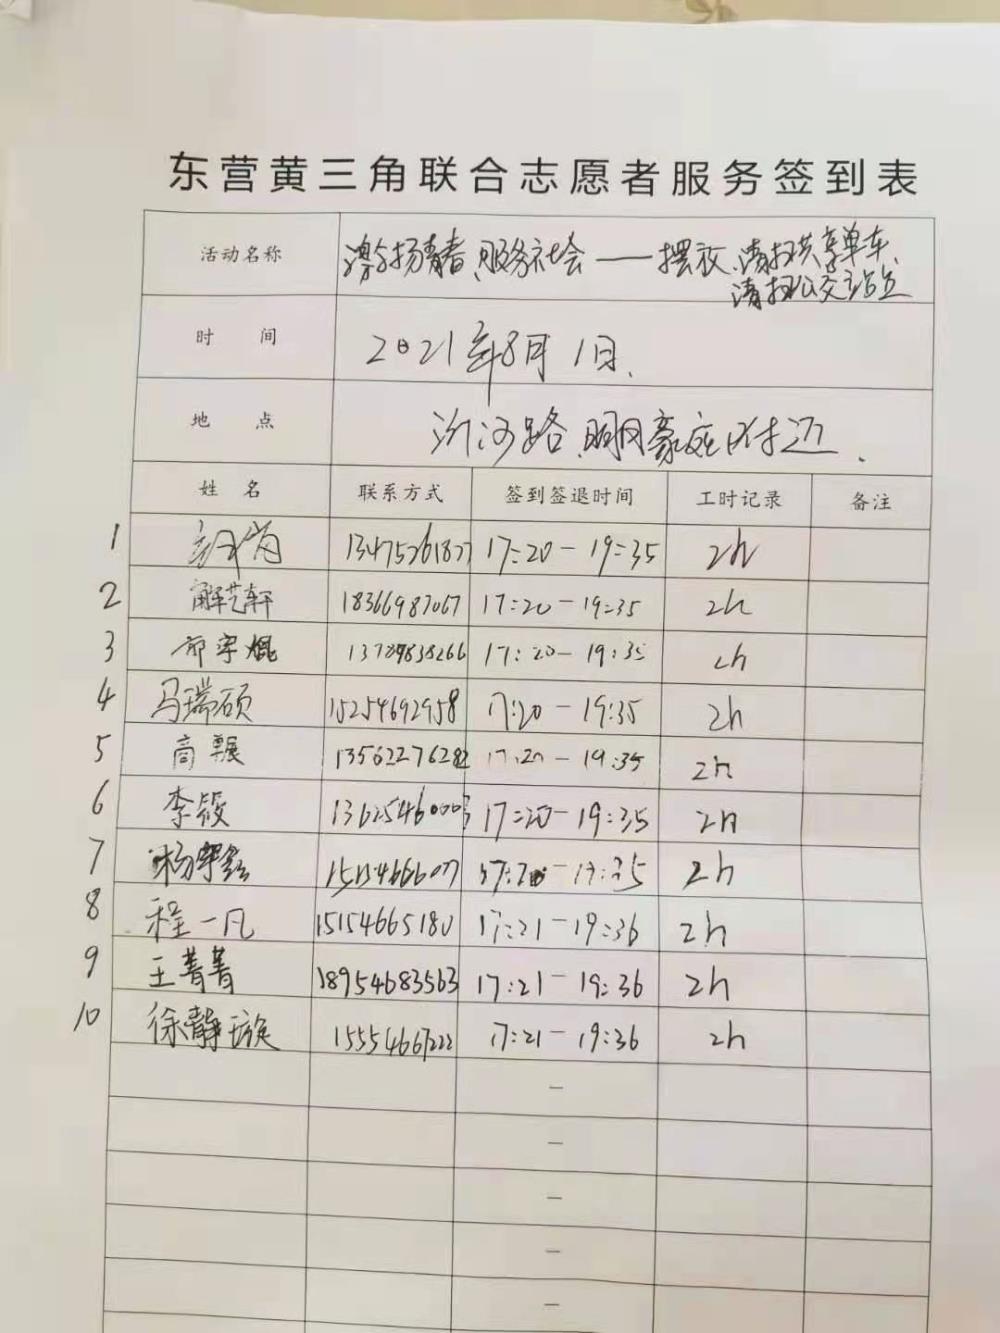 东营黄三角联合志愿者服务签到表
活动名称 激扬青春、服务社会——摆放、清扫共享单车、
清扫公交站点
时 间 2021年8月1日.
地 点 汾河路、明月豪庭附近.
姓 名 联系方式 签到签退时间 工时记录 备注
1 13475261827 17:20-19:35 2h
2 解艺轩 18366987067 17:20-19:35 2h
3 17:20-19:35 2h
4 马瑞硕 15254692958 17:20-19:35 2h
5 高 17:20-19:35 2h
6 李筱 17:20-19:35 2h
7 杨 17:20-19:35 2h
8 程一凡 15154665180 17:21-19:36 2h
9 王菁菁 18954683563 17:21-19:36 2h
10 徐静璇 15554667222 17:21-19:36 2h
-
-
-
-
-